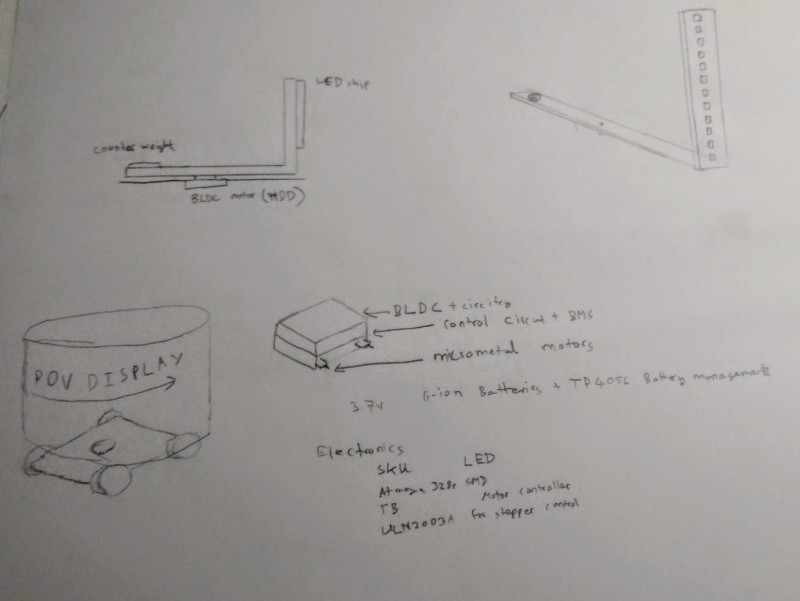 LED strip
counter weight
BLDC motor (HDD)
POV DISPLAY
BLDC + circitry
control circut + BMS
micrometal motors
3.7v Li-ion Batteries + TP4056 Battery management
Electronics
SKU LED
Atmega 328p SMD
TB Motor controller
ULN2003A for stepper control